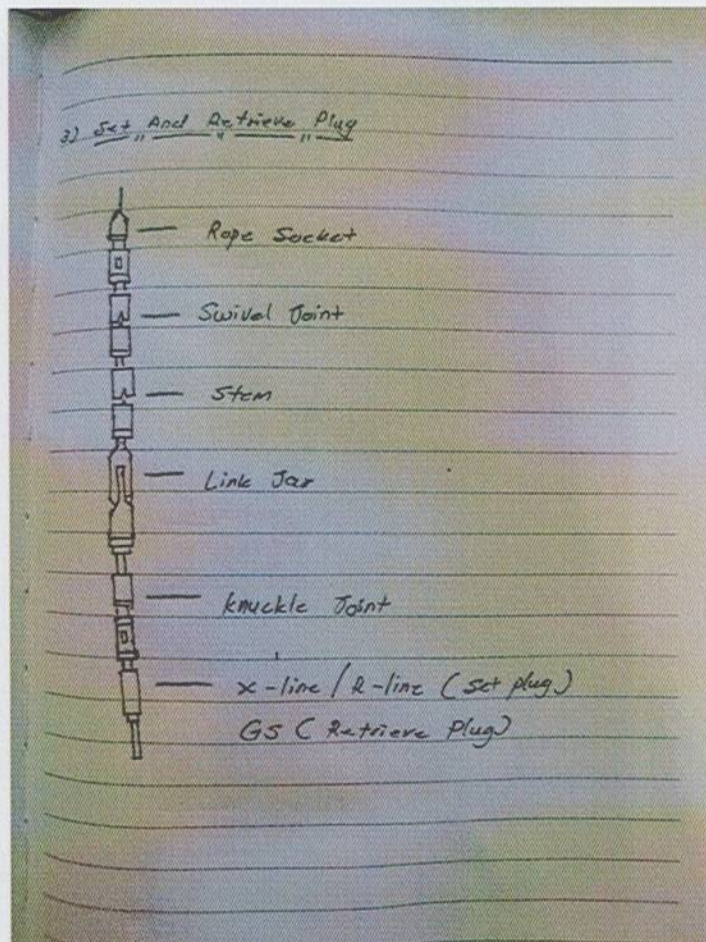 3) Set And Retrieve Plug
Rope Socket
Swivel Joint
Stem
Link Jar
Knuckle Joint
X-line / R-line (Set plug)
GS (Retrieve Plug)